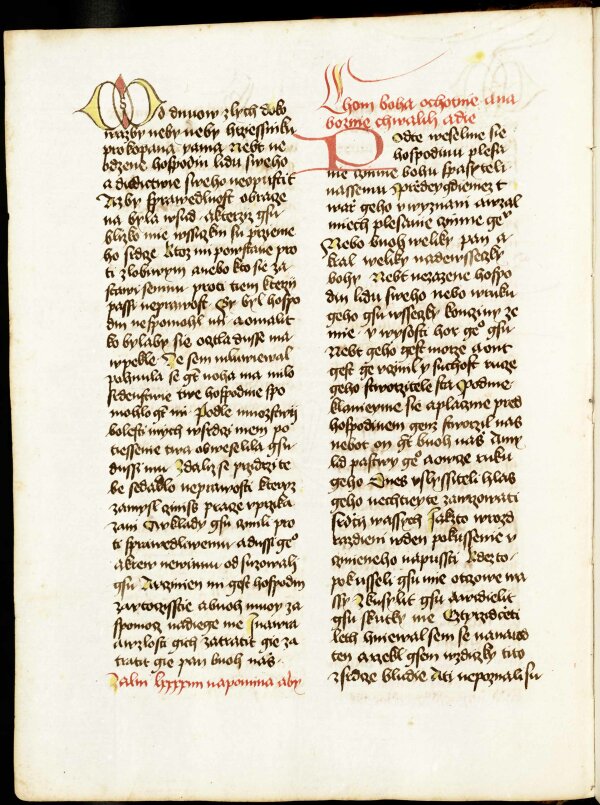 Od dnuow zlych dokō
nawzby neby neby hrzessniku
prokopana yama Nebt ne
odzene hospodin lidu sweho
a diedictwie sweho neopustit
Azby sprawedlnost obrace
na byla wsud akterziz gsu
blizko nie wssiczkni su prziene
ho sidce Ktoz mi powstane pro
ti zlobiwym anebo kto sie za
stawi semnu proti tiem kterzy
passi neprawost By byl hospo
din nespomohl mi aomalit
ko bylaby sie octla dusse ma
wpekle Ze sem mluwiewal
pohnula se gt noha ma milo
srdenstwie twe hospodine spo
mohlo gt mi Podle mnozstwy
bolesti mych wsrdci mem po
tiessenie twa obweselila gsu
dussi mu Zdaliz se przidrzi te
be sedadlo neprawosti kteryz
zamysl czinis prace wprzika
zani Cwklady gsu czinili pro
ti sprawedliwemu adussi geo
akrew newinnu od suzowali
gsu Avczinien mi gest hospodin
zavtoczisscie abuoh muoy za
spomoz nadiege me Inawra
anzlosti gich zatratit gie za
tratit gie pan buoh nas
Zalm lxxxxiiii napomina aby
chom boha ochotnie ana
bozne chwalili adie
Podte weselme sie
hospodinu plesa
nie czinme bohu spasyteli
nassemu Przedeygdieme t
warz geho vwyznani awzal
miech plesanie czinme geu
Nebo buoh weliky pan a
kral weliky nadewsseczky
bohy Nebt nezazene hospo
din lidu sweho nebo wruku
geho gsu wsseczky koncziny ze
mie y wysosti hor geo gsu
Nebt geho gest morze yont
gest ge vczinil y suchost ruce
geho stworzitele sta Podme
klanieyme sie aplaczme przed
hospodinem genz stworzil nas
nebot on gt buoh nas Amy
lid pastwy geo aowce ruku
geho Dnes vslyssiteli hlas
geho nechtieyte zatwrzowati
srdci wassych Jakzto wrozd
razdieni wden pokussenie v
czmieneho napussti Kdezto
pokusseli gsu mie otczowe wa
ssy Zkusylit gsu awidielit
gsu skutky me Cztyrzidceti
leth hniewal sem se nanaro
ten arzekl gsem wzdiczky tito
zsidce bludie Ati nepoznali su